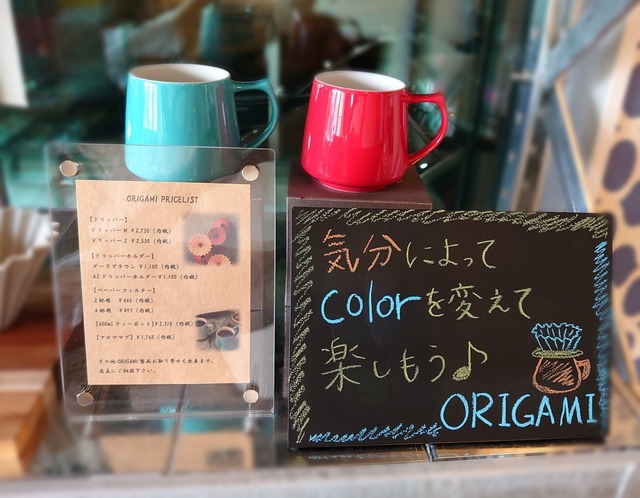 ORIGAMI PRICELIST
【ドリッパー】
ドリッパーM ¥2,750 (内税)
ドリッパーS ¥2,530 (内税)
【ドリッパーホルダー】
ダークブラウン ¥1,100 (内税)
ASドリッパーホルダー ¥1,100 (内税)
【ペーパーフィルター】
2杯用 ¥465 (内税)
4杯用 ¥495 (内税)
【660mlティーポット】¥2,310 (内税)
【アロママグ】 ¥1,760 (内税)
その他ORIGAMI製品お取り寄せも出来ます。
店主にご相談下さい。
気分によって
colorを変えて
楽しもう♪
ORIGAMI